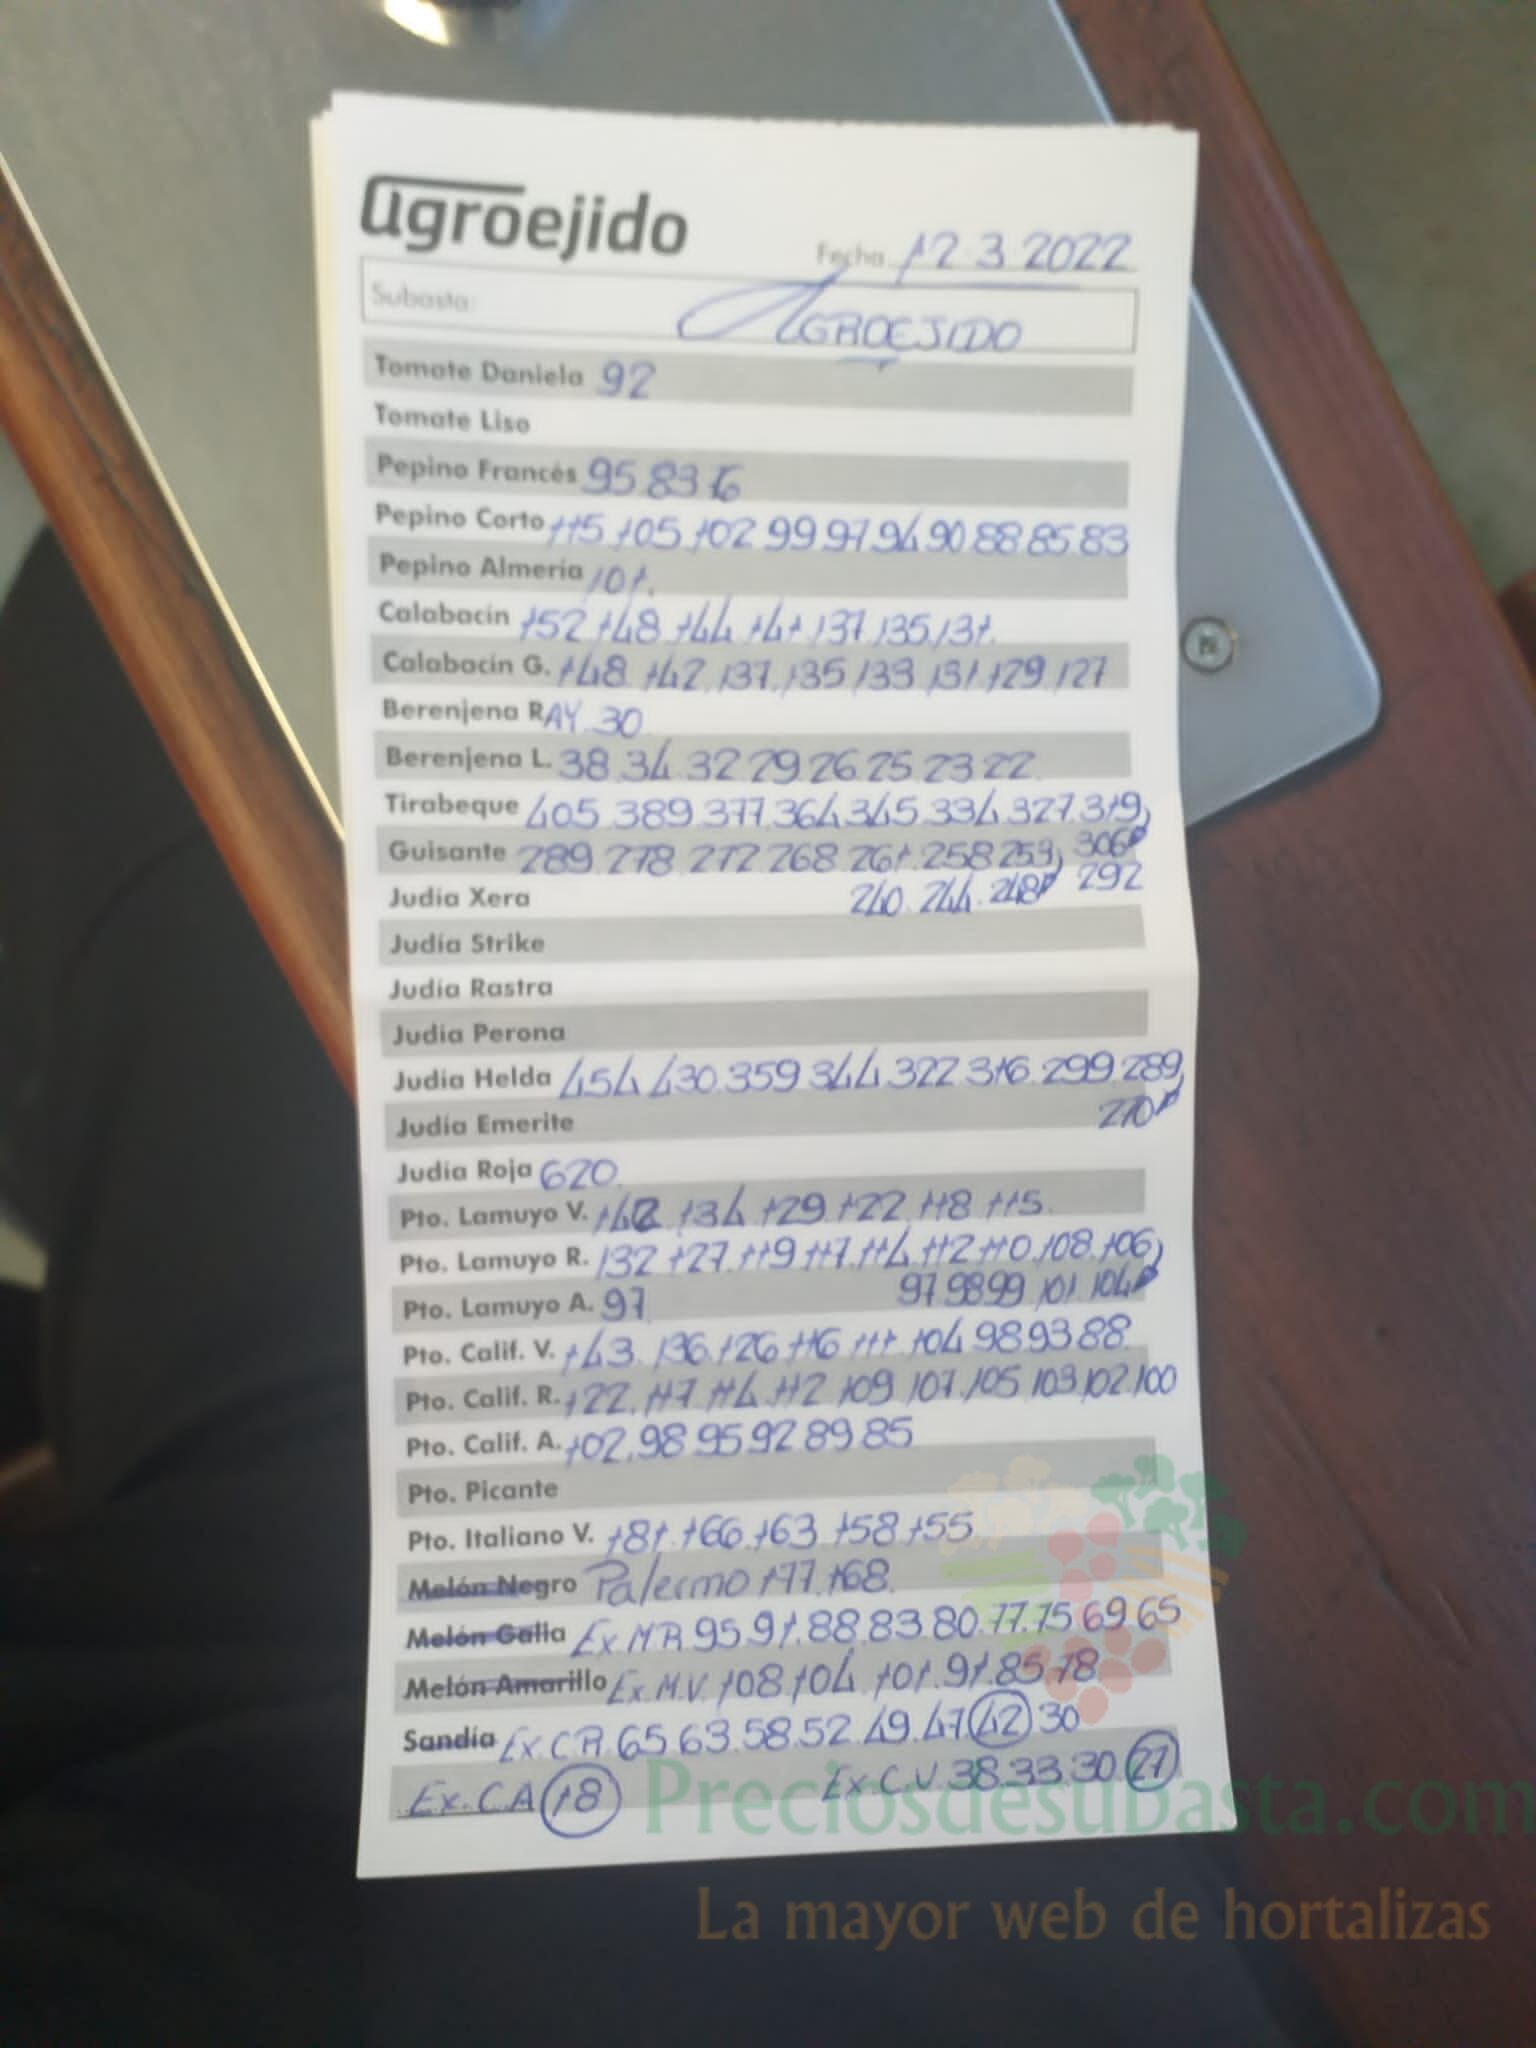 agroejido
Fecha 12.3.2022
Subasta: AGROEJIDO
Tomate Daniela 92
Tomate Liso
Pepino Francés 95.83.76
Pepino Corto 115.105.102.99.97.94.90.88.85.83
Pepino Almería 101.
Calabacín 152.148.144.141.137.135.131.
Calabacín G. 148.142.137.135.133.131.129.127
Berenjena RAY. 30
Berenjena L. 38.34.32.29.26.25.23.22
Tirabeque 405.389.377.364.345.334.327.319
Guisante 289.278.272.268.261.258.253 306
Judía Xera 240.244.248 292
Judía Strike
Judía Rastra
Judía Perona
Judía Helda 454.430.359.344.322.316.299.289
Judía Emerite 270
Judía Roja 620.
Pto. Lamuyo V. 142.134.129.122.118.115.
Pto. Lamuyo R. 132.127.119.117.114.112.110.108.106
Pto. Lamuyo A. 97 97.98.99.101.104
Pto. Calif. V. 143.136.126.116.111.104.98.93.88.
Pto. Calif. R. 122.117.114.112.109.107.105.103.102.100
Pto. Calif. A. 102.98.95.92.89.85
Pto. Picante
Pto. Italiano V. 181.166.163.158.155
Melón Negro Palermo 177.168.
Melón Galia Ex.M.R. 95.91.88.83.80.77.75.69.65
Melón Amarillo Ex.M.V. 108.104.101.91.85.78
Sandía Ex.C.R. 65.63.58.52.49.47.42 30
Ex.C.A 18 Ex.C.V. 38.33.30.27
Preciosdesubasta.com
La mayor web de hortalizas